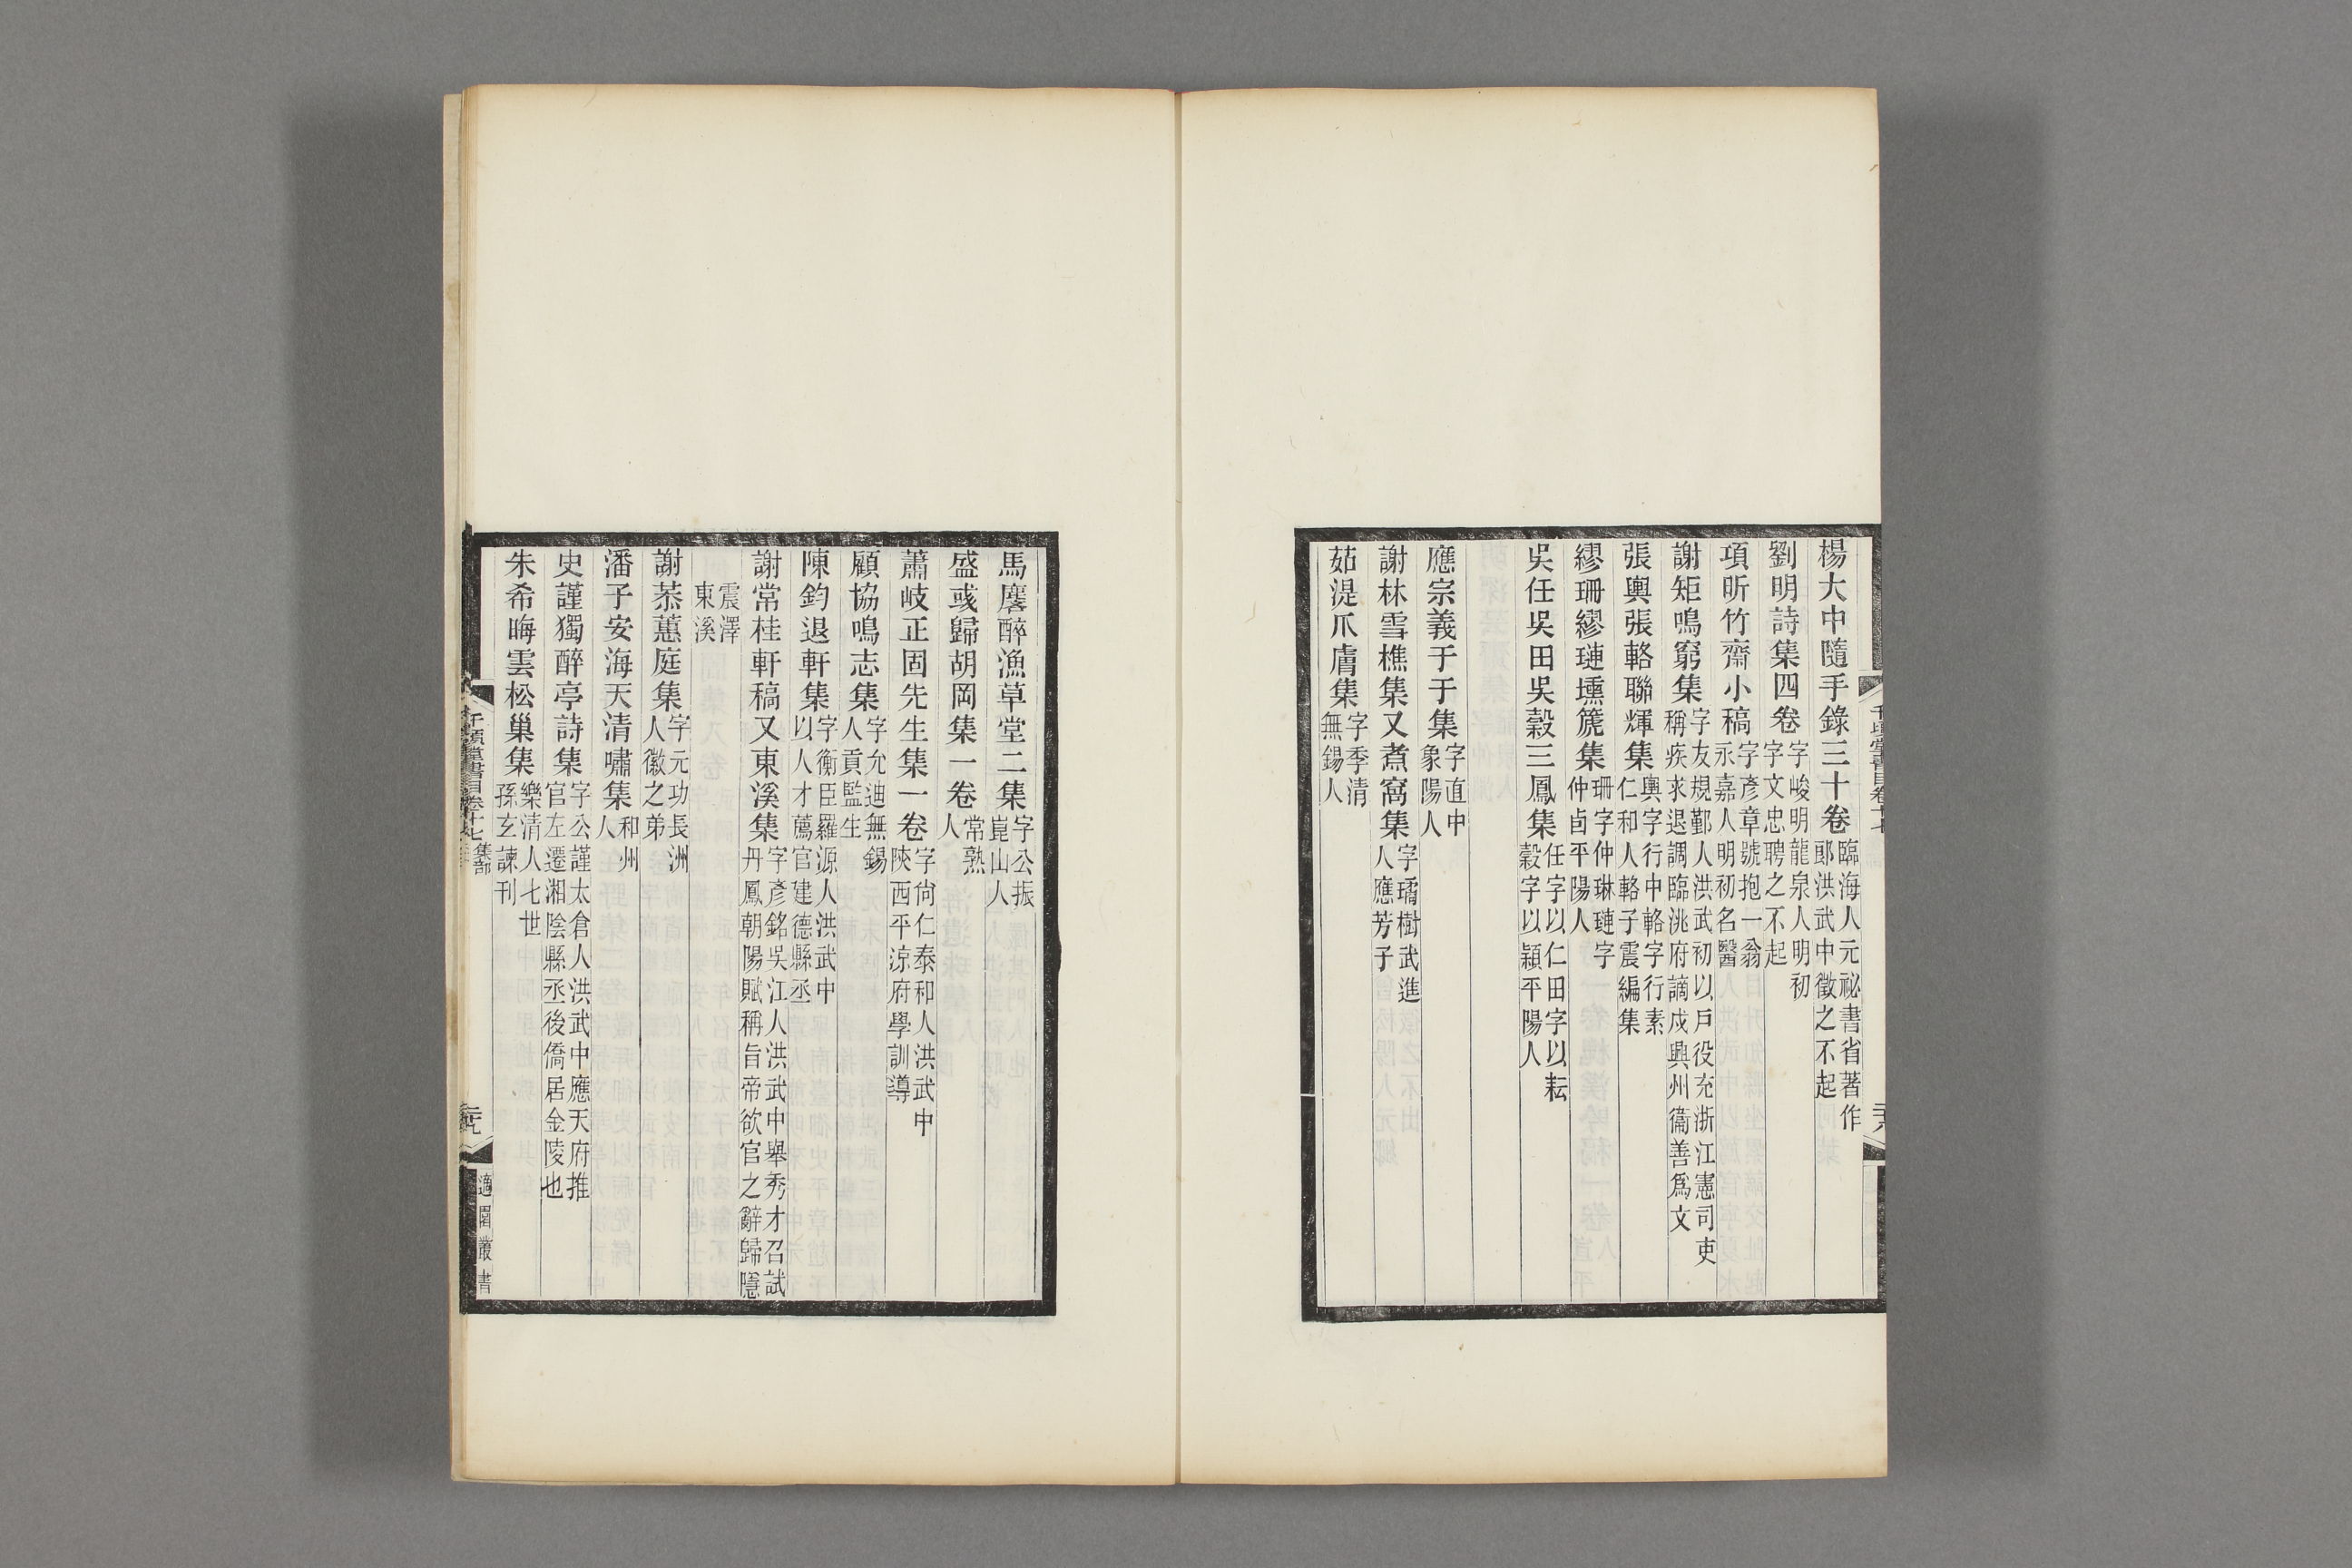 楊大中隨手錄三十卷臨海人元祕書省著作
郎洪武中徵之不起
劉明詩集四卷字峻明龍泉人明初
字文忠聘之不起
項昕竹齋小稿字彥章號抱一翁
永嘉人明初名醫
謝矩鳴窮集字友規鄞人洪武初以戶役充浙江憲司吏
稱疾求退調臨洮府謫戍興州衞善爲文
張輿張輅聯輝集輿字行中輅字行素
仁和人輅子震編集
繆珊繆璉壎篪集珊字仲琳璉字
仲卣平陽人
吳任吳田吳穀三鳳集任字以仁田字以耘
穀字以穎平陽人
應宗義于于集字直中
象陽人
謝林雪樵集又煮窩集字璚樹武進
人應芳子
茹湜爪膚集字季清
無錫人
馬麐醉漁草堂二集字公振
崑山人
盛彧歸胡岡集一卷常熟
人
蕭岐正固先生集一卷字尙仁泰和人洪武中
陝西平涼府學訓導
顧協鳴志集字允迪無錫
人貢監生
陳鈞退軒集字衡臣羅源人洪武中
以人才薦官建德縣丞
謝常桂軒稿又東溪集字彥銘吳江人洪武中舉秀才召試
丹鳳朝陽賦稱旨帝欲官之辭歸隱
震澤
東溪
謝恭蕙庭集字元功長洲
人徽之弟
潘子安海天清嘯集和州
人
史謹獨醉亭詩集字公謹太倉人洪武中應天府推
官左遷湘陰縣丞後僑居金陵也
朱希晦雲松巢集樂清人七世
孫玄諫刊
千頃堂書目卷十七 集部
二十九
適園叢書